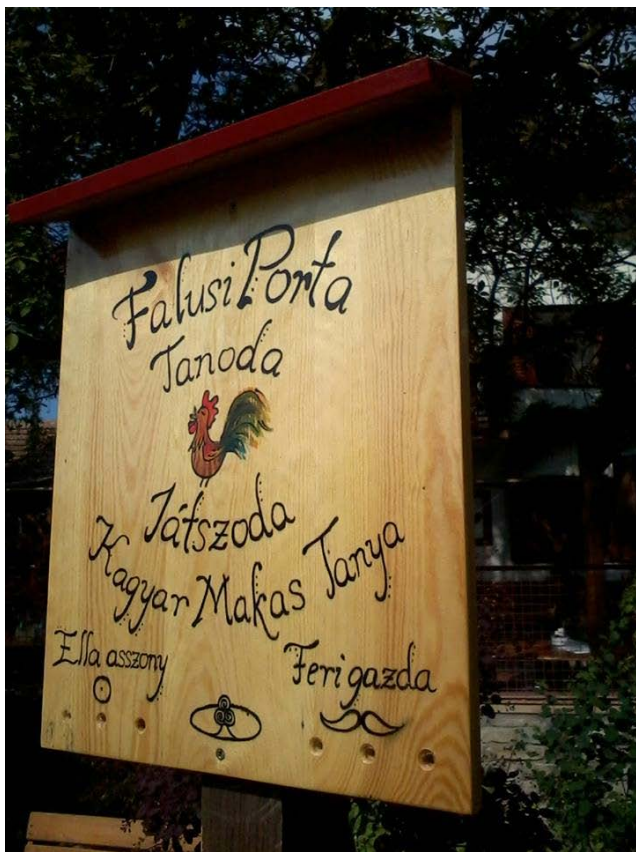 Falusi Porta
Tanoda
Játszoda
Kagyar Makas Tanya
Ella asszony
Feri gazda